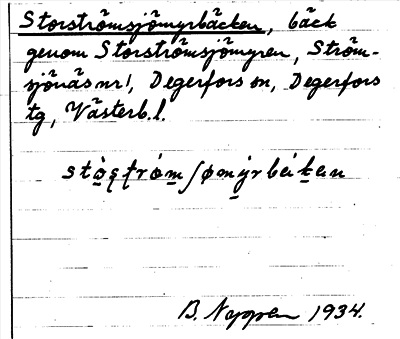 Storströmsjömyrbäcken, bäck
genom Storströmsjömyren, Ström-
sjönäs nr 1, Degerfors sn, Degerfors
tg, Västerb. l.
B. Nyppen 1934.